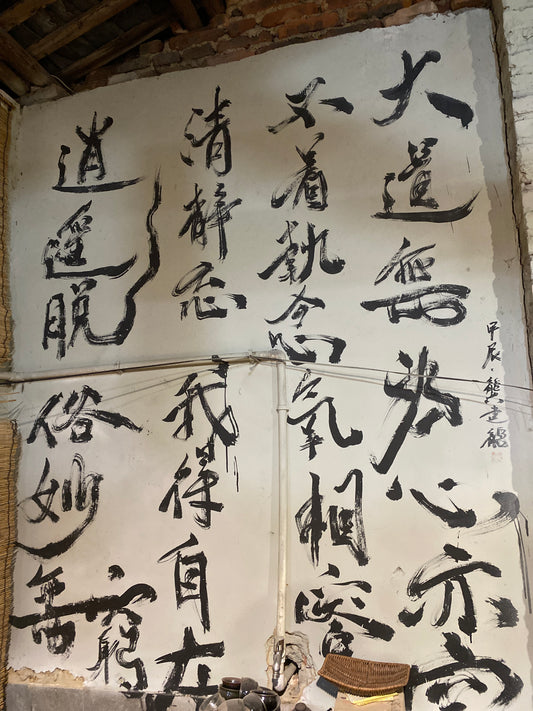 大道無为心亦空
不着執念氣相容
清静忘我得自在
逍遥脱俗妙無窮
甲辰·熊建龍